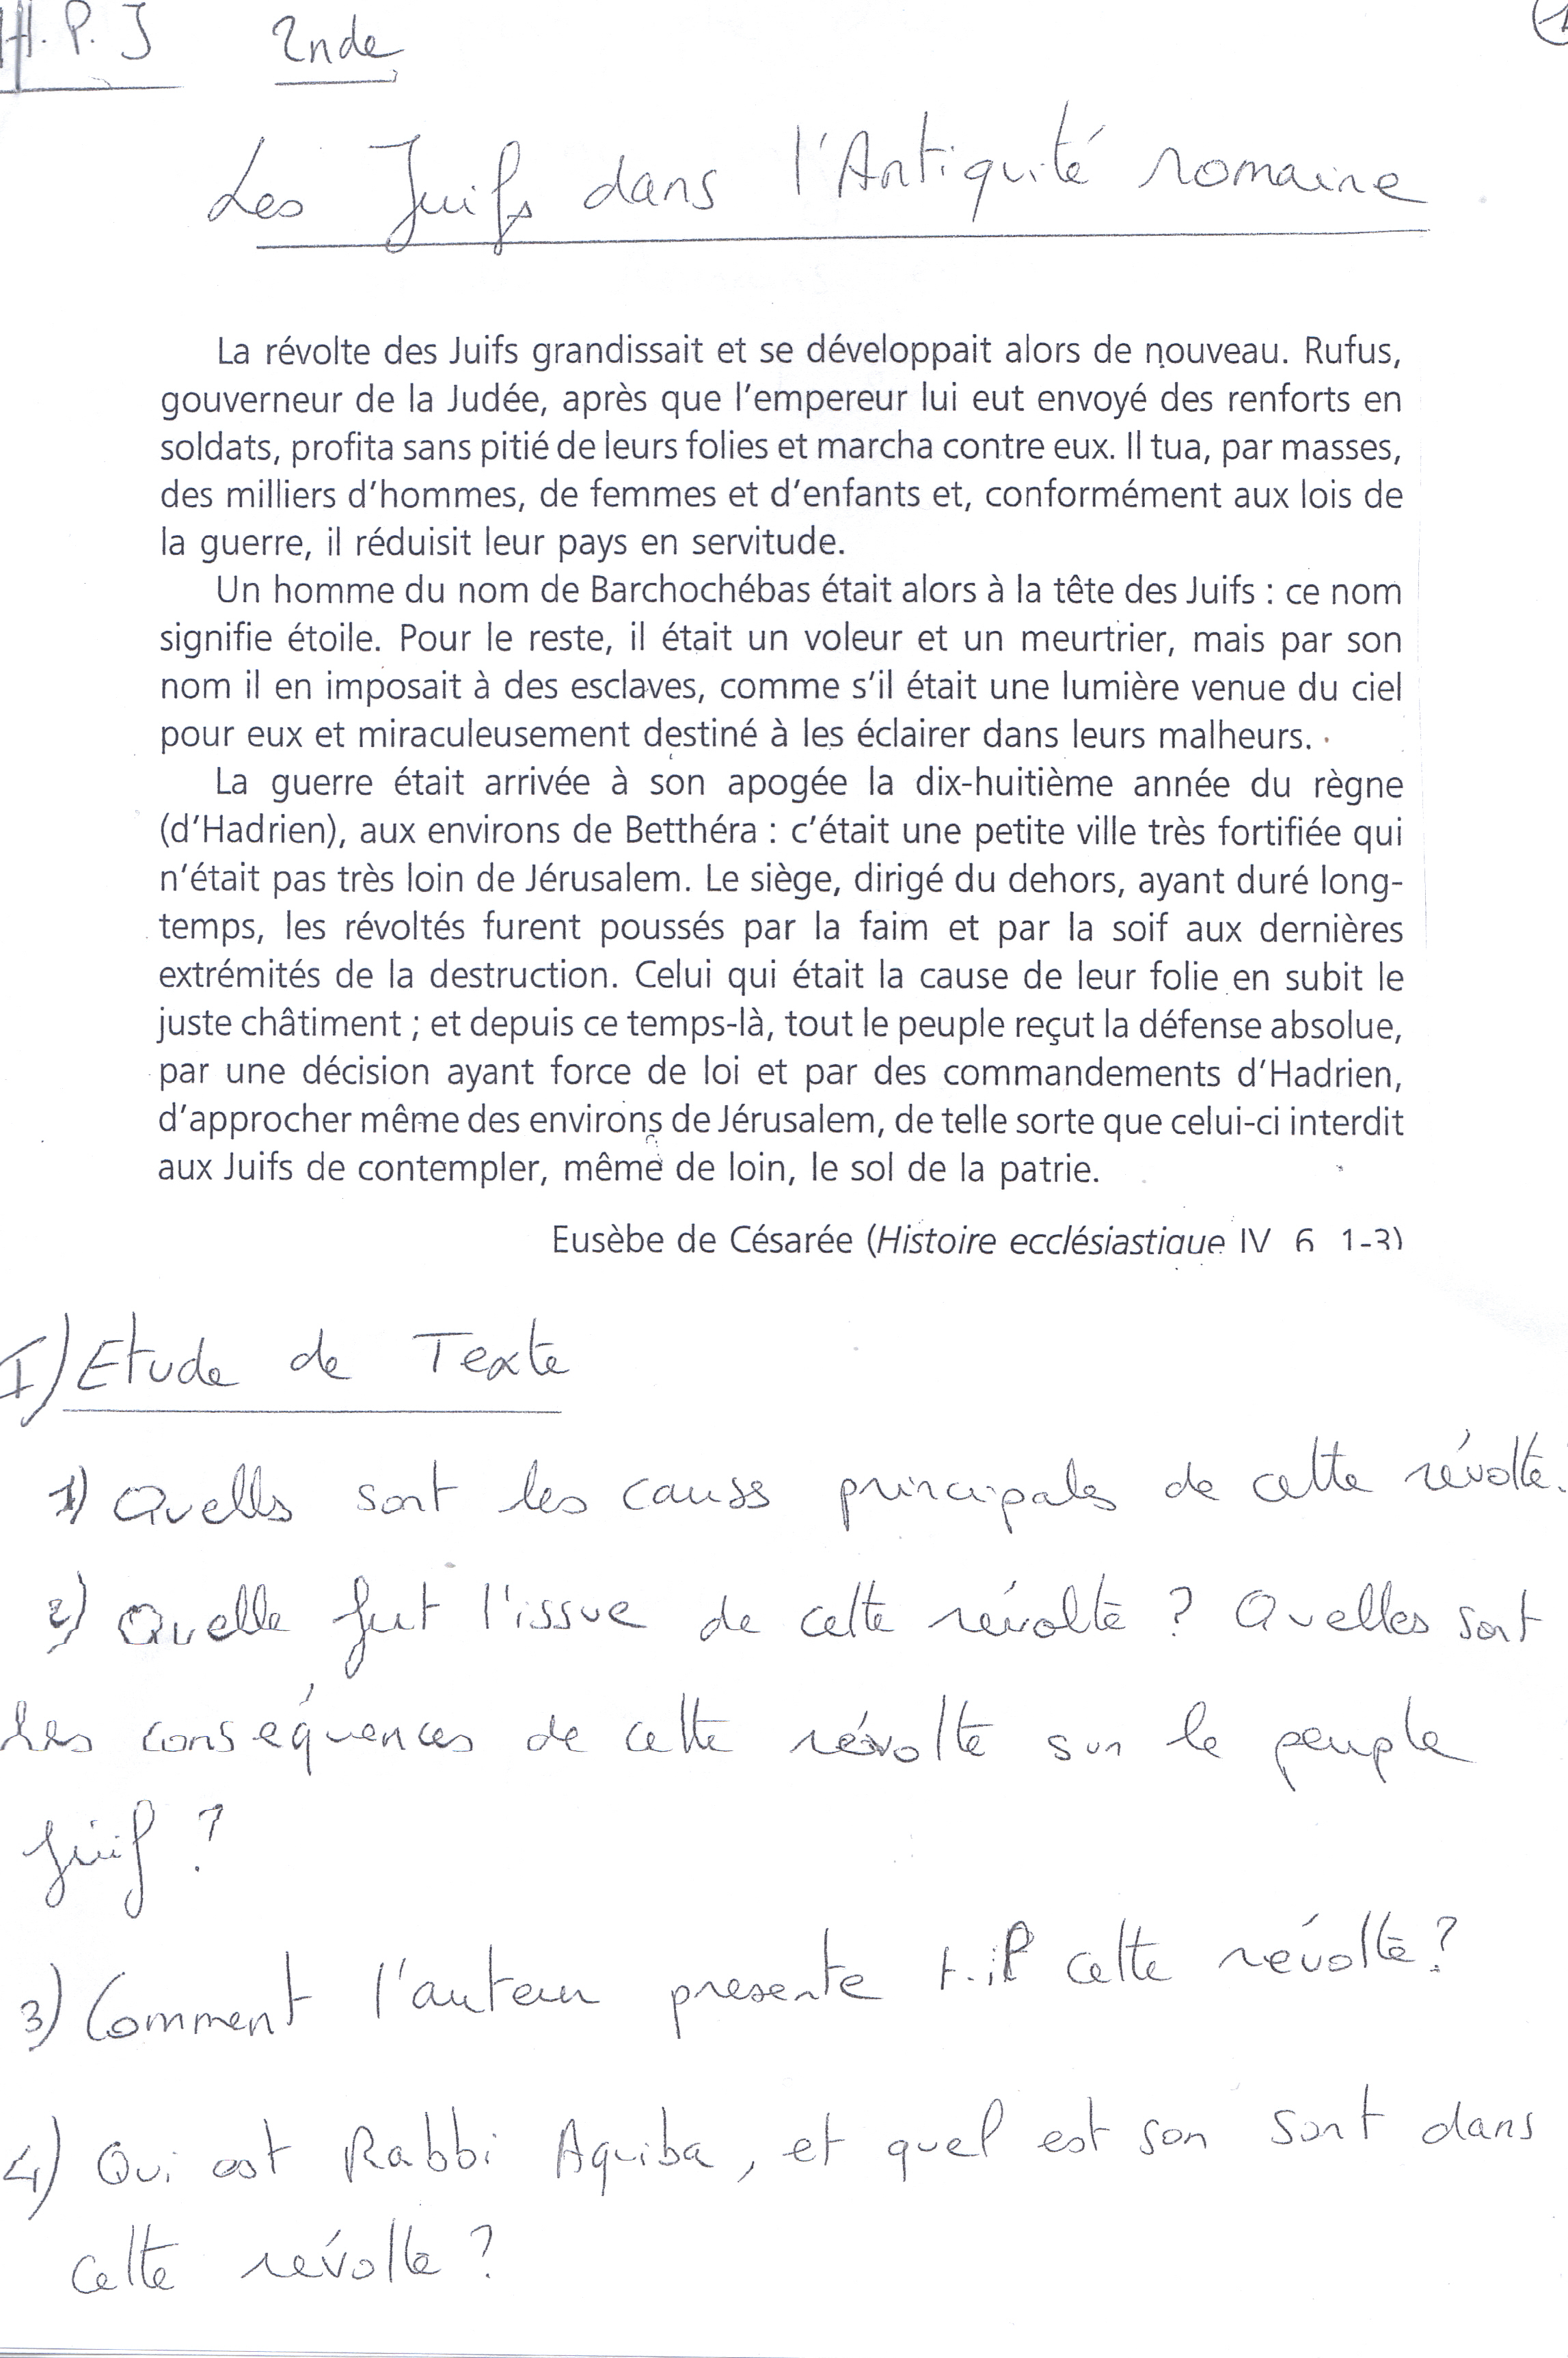 H.P.J 2nde 1
Les Juifs dans l'Antiquité romaine
La révolte des Juifs grandissait et se développait alors de nouveau. Rufus,
gouverneur de la Judée, après que l'empereur lui eut envoyé des renforts en
soldats, profita sans pitié de leurs folies et marcha contre eux. Il tua, par masses,
des milliers d'hommes, de femmes et d'enfants et, conformément aux lois de
la guerre, il réduisit leur pays en servitude.
Un homme du nom de Barchochébas était alors à la tête des Juifs : ce nom
signifie étoile. Pour le reste, il était un voleur et un meurtrier, mais par son
nom il en imposait à des esclaves, comme s'il était une lumière venue du ciel
pour eux et miraculeusement destiné à les éclairer dans leurs malheurs.
La guerre était arrivée à son apogée la dix-huitième année du règne
(d'Hadrien), aux environs de Betthéra : c'était une petite ville très fortifiée qui
n'était pas très loin de Jérusalem. Le siège, dirigé du dehors, ayant duré long-
temps, les révoltés furent poussés par la faim et par la soif aux dernières
extrémités de la destruction. Celui qui était la cause de leur folie en subit le
juste châtiment ; et depuis ce temps-là, tout le peuple reçut la défense absolue,
par une décision ayant force de loi et par des commandements d'Hadrien,
d'approcher même des environs de Jérusalem, de telle sorte que celui-ci interdit
aux Juifs de contempler, même de loin, le sol de la patrie.
Eusèbe de Césarée (Histoire ecclésiastique IV 6 1-3)
I) Etude de Texte
1) Quells sont les causs principals de cette révolte.
2) Quelle fut l'issue de cette révolte ? Quelles sont
les conséquences de cette révolte sur le peuple
juif ?
3) Comment l'auteur presente t-il cette révolte ?
4) Qui est Rabbi Aquiba, et quel est son sort dans
cette révolte ?